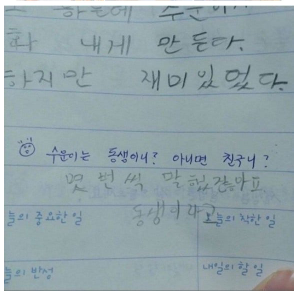 하는데 수운이가
화 내게 만든다.
하지만 재미있었다.
수운이는 동생이니? 아니면 친구니?
몇 번씩 말했잖아요
동생이라고
늘의 중요한 일
늘의 착한 일
늘의 반성
내일의 할 일